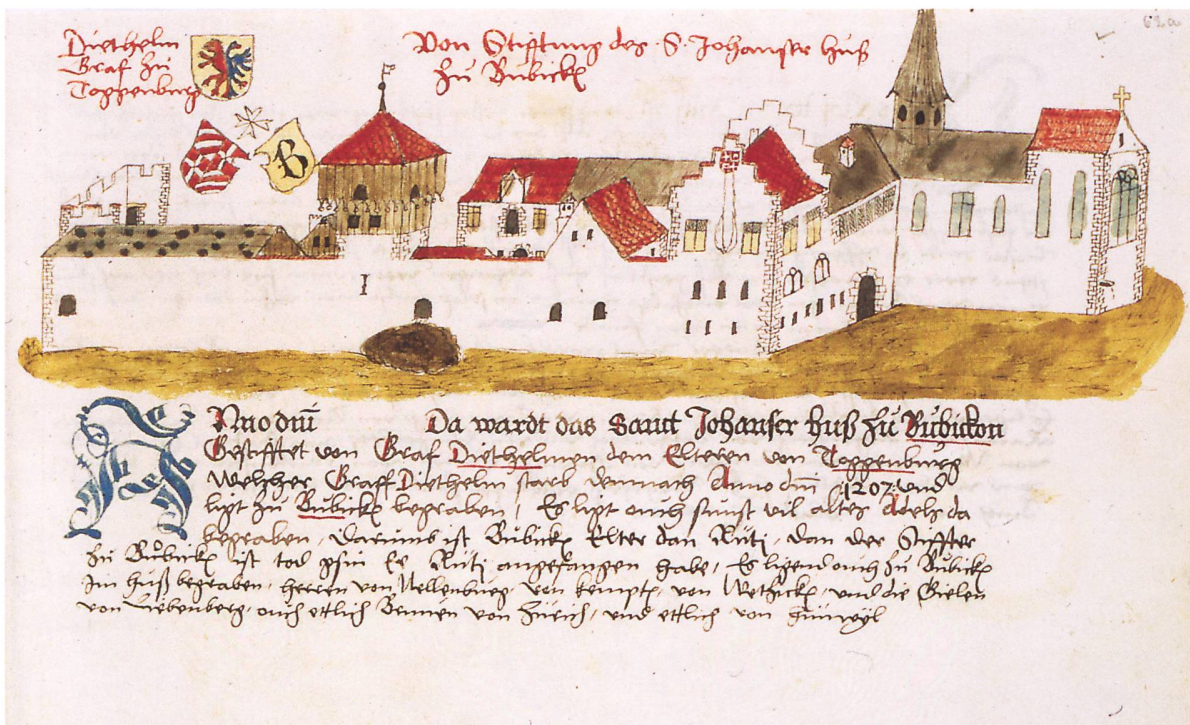 Diethelm
Graf zu
Toggenburg
Von Stifftung des S. Johanser huß
zu Bubickē
62a
B
I
Anno dnī Da wardt das Sant Johanser huß zů Bůbickon
Gestifftet von Graf Diethelmen dem Elteren von Toggenburg
Welcher Graff Diethelm starb demnach Anno dnī 1207. und
ligt zů Bubickē begraben, Es ligt ouch sunst vil altes Adels da
begraben, Darumb ist Bubickē Elter dan Rüti, dan der Stiffter
zů Bubickē ist tod gsin Ee Rüti angefangen habe, Es ligend ouch zů Bubickē
Im huß begraben, herren von Nellenburg, von kemptē, von Wetzickē, und die Gielen
von Liebenberg, ouch ettlich Brunen von Zürich, und ettlich von Hünwyl